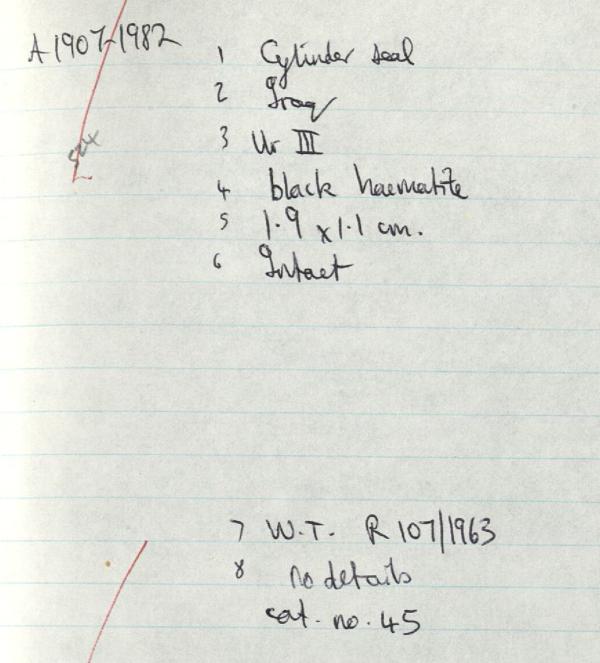 A1907-1982
1 Cylinder seal
2 Iraq
3 Ur III
4 black haematite
5 1.9 x 1.1 cm.
6 Intact
7 W.T. R 107/1963
8 no details
cat. no. 45